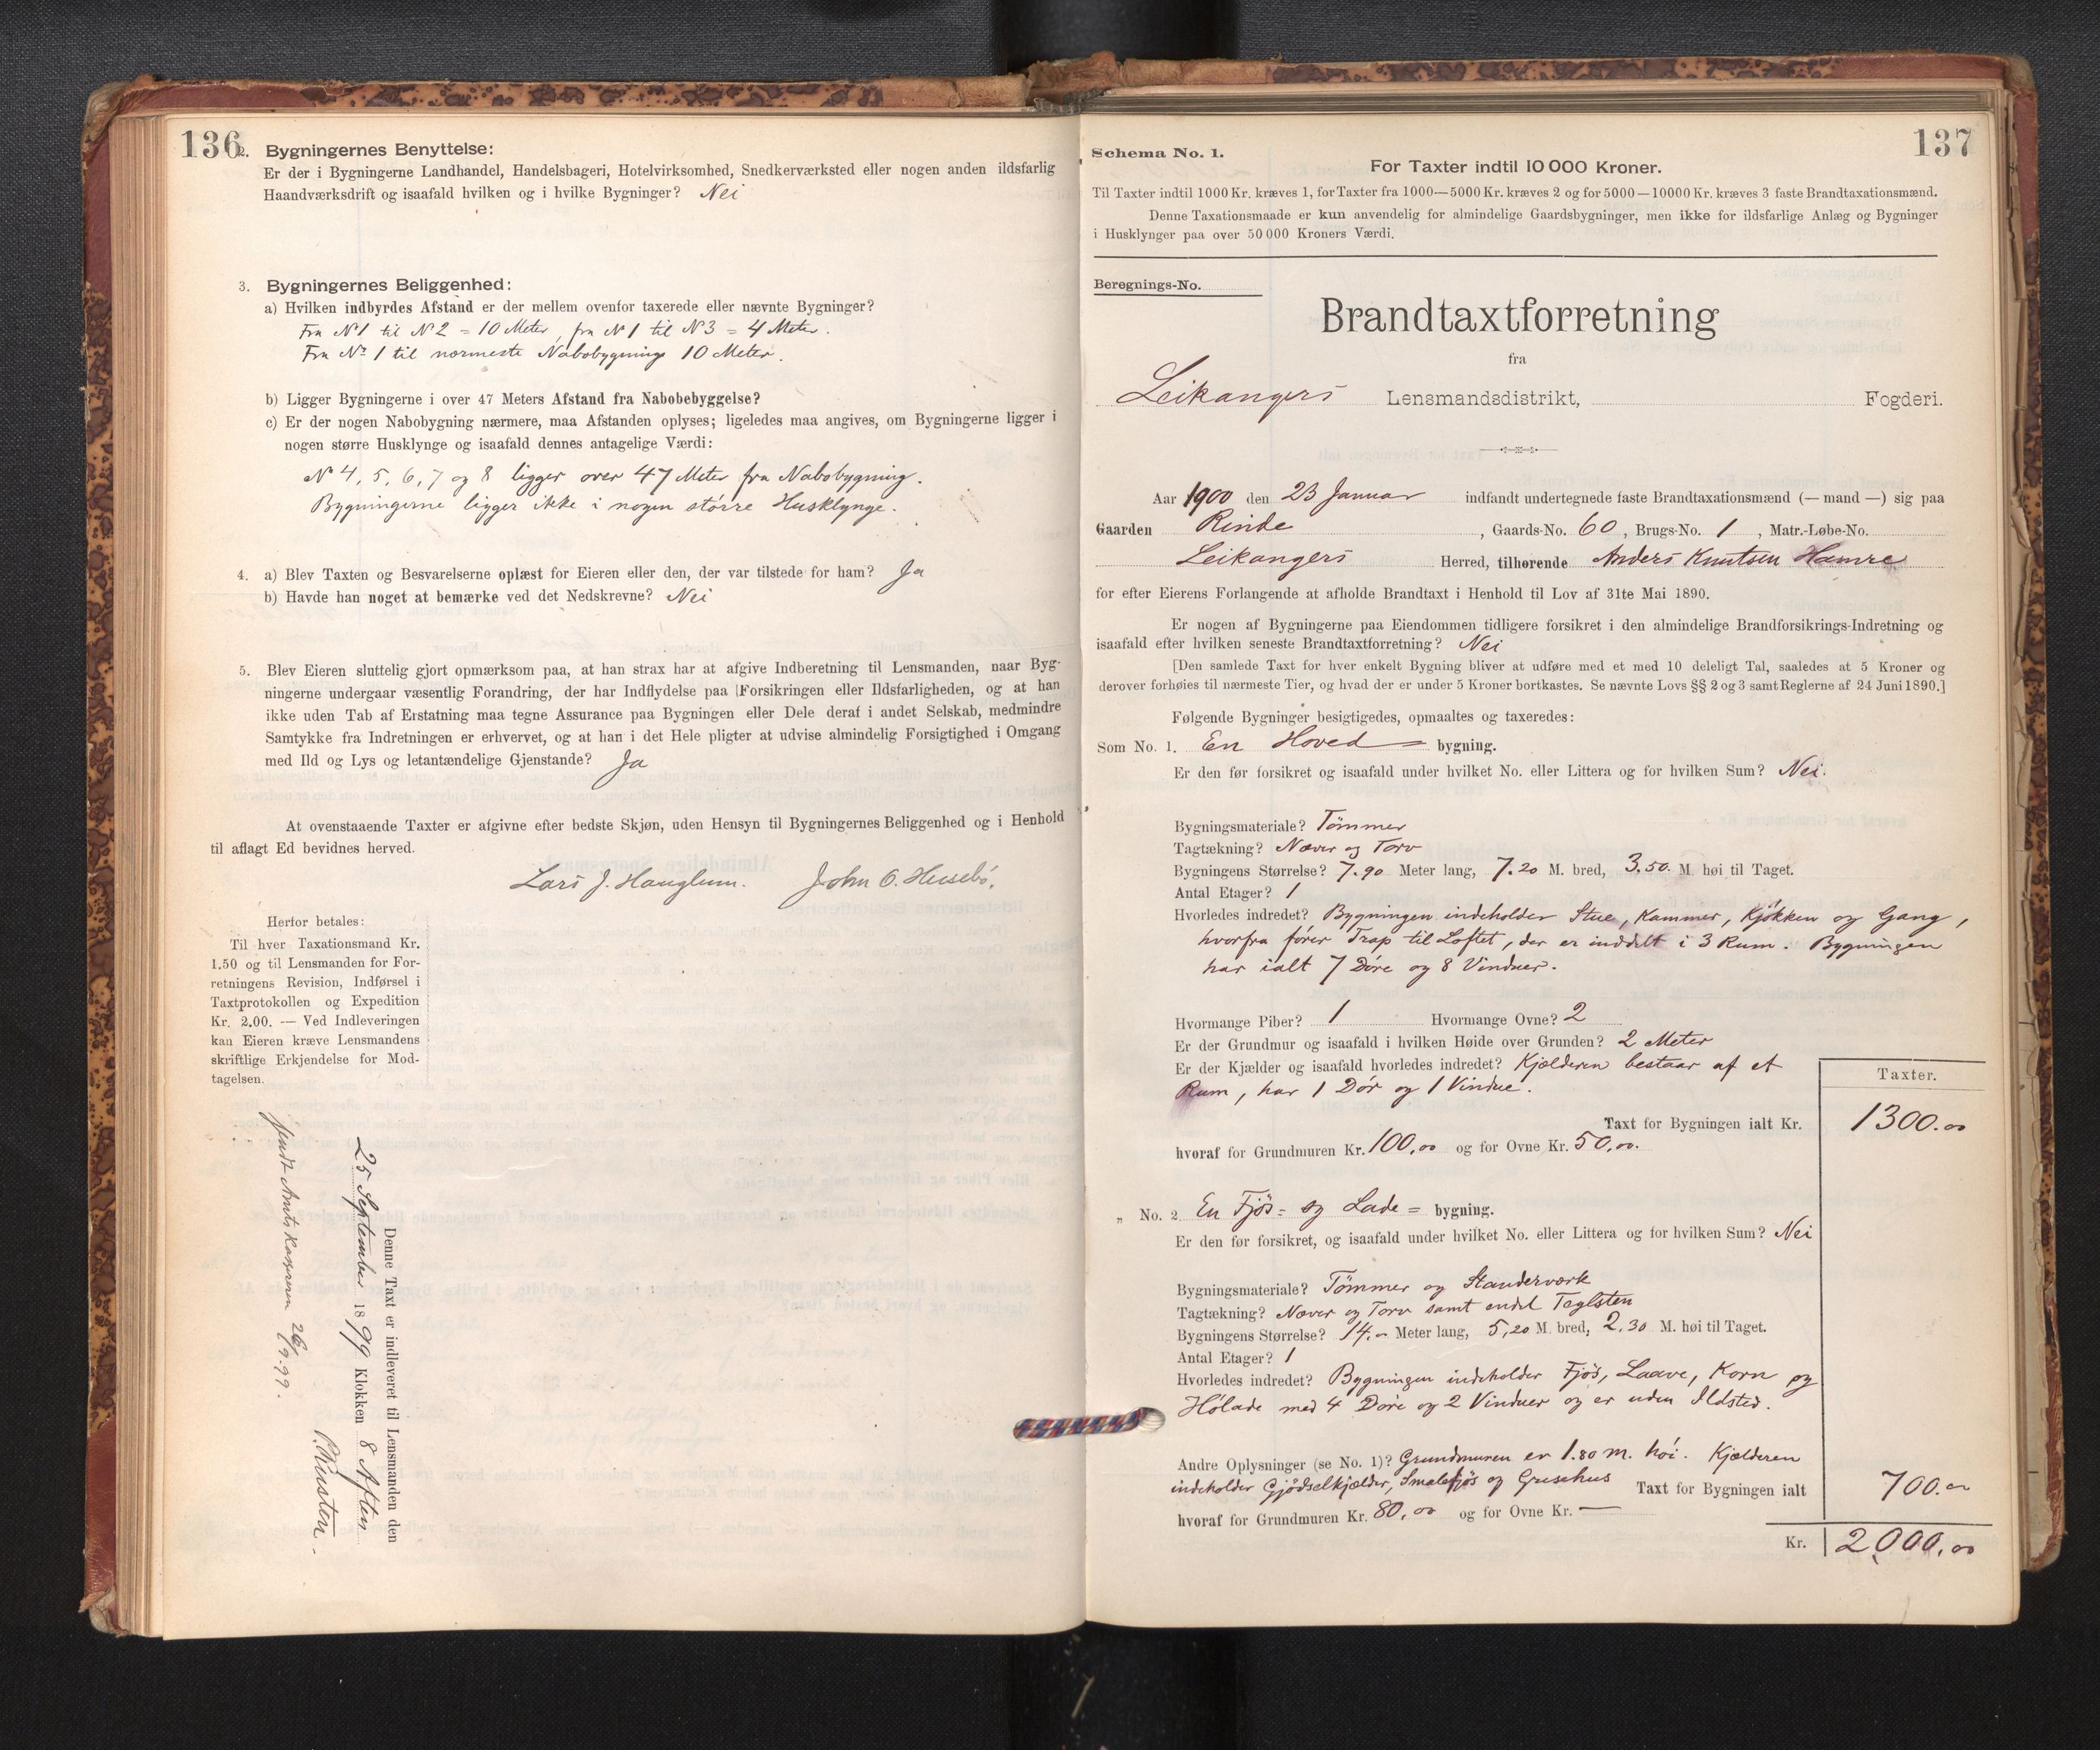 136
2. Bygningernes Benyttelse:
Er der i Bygningerne Landhandel, Handelsbageri, Hotelvirksomhed, Snedkerværksted eller nogen anden ildsfarlig
Haandværksdrift og isaafald hvilken og i hvilke Bygninger? Nei
3. Bygningernes Beliggenhed:
a) Hvilken indbyrdes Afstand er der mellem ovenfor taxerede eller nævnte Bygninger?
Fra N 1 til N 2 = 10 Meter, fra N 1 til N 3 = 4 Meter.
Fra No 1 til nærmeste Nabobygning 10 Meter.
b) Ligger Bygningerne i over 47 Meters Afstand fra Nabobebyggelse?
c) Er der nogen Nabobygning nærmere, maa Afstanden oplyses; ligeledes maa angives, om Bygningerne ligger i
nogen større Husklynge og isaafald dennes antagelige Værdi:
N 4, 5, 6, 7 og 8 ligger over 47 Meter fra Nabobygning.
Bygningerne ligger ikke i nogen större Husklynge.
4. a) Blev Taxten og Besvarelserne oplæst for Eieren eller den, der var tilstede for ham? Ja
b) Havde han noget at bemærke ved det Nedskrevne? Nei
5. Blev Eieren sluttelig gjort opmærksom paa, at han strax har at afgive Indberetning til Lensmanden, naar Byg-
ningerne undergaar væsentlig Forandring, der har Indflydelse paa Forsikringen eller Ildsfarligheden, og at han
ikke uden Tab af Erstatning maa tegne Assurance paa Bygningen eller Dele deraf i andet Selskab, medmindre
Samtykke fra Indretningen er erhvervet, og at han i det Hele pligter at udvise almindelig Forsigtighed i Omgang
med Ild og Lys og letantændelige Gjenstande? Ja
At ovenstaaende Taxter er afgivne efter bedste Skjøn, uden Hensyn til Bygningernes Beliggenhed og i Henhold
til aflagt Ed bevidnes herved.
Lars J. Hauglum. John O. Husebö.
Herfor betales:
Til hver Taxationsmand Kr.
1.50 og til Lensmanden for For-
retningens Revision, Indførsel i
Taxtprotokollen og Expedition
Kr. 2.00. — Ved Indleveringen
kan Eieren kræve Lensmandens
skriftlige Erkjendelse for Mod-
tagelsen.
Denne Taxt er indleveret til Lensmanden den
25 September 1899 Klokken 8 Aften
P. Husten.
Sendt Amtskasseren 26/9.99.
137
Schema No. 1.
For Taxter indtil 10 000 Kroner.
Til Taxter indtil 1000 Kr. kræves 1, for Taxter fra 1000—5000 Kr. kræves 2 og for 5000—10000 Kr. kræves 3 faste Brandtaxationsmænd.
Denne Taxationsmaade er kun anvendelig for almindelige Gaardsbygninger, men ikke for ildsfarlige Anlæg og Bygninger
i Husklynger paa over 50 000 Kroners Værdi.
Beregnings-No.
Brandtaxtforretning
fra
Leikangers Lensmandsdistrikt, Fogderi.
Aar 1900 den 23 Januar indfandt undertegnede faste Brandtaxationsmænd (— mand —) sig paa
Gaarden Rinde, Gaards-No. 60, Brugs-No. 1, Matr.-Løbe-No.
Leikangers Herred, tilhørende Anders Knutsen Hamre
for efter Eierens Forlangende at afholde Brandtaxt i Henhold til Lov af 31te Mai 1890.
Er nogen af Bygningerne paa Eiendommen tidligere forsikret i den almindelige Brandforsikrings-Indretning og
isaafald efter hvilken seneste Brandtaxtforretning? Nei
[Den samlede Taxt for hver enkelt Bygning bliver at udføre med et med 10 deleligt Tal, saaledes at 5 Kroner og
derover forhøies til nærmeste Tier, og hvad der er under 5 Kroner bortkastes. Se nævnte Lovs §§ 2 og 3 samt Reglerne af 24 Juni 1890.]
Følgende Bygninger besigtigedes, opmaaltes og taxeredes:
Som No. 1. En Hoved= bygning.
Er den før forsikret og isaafald under hvilket No. eller Littera og for hvilken Sum? Nei.
Bygningsmateriale? Tömmer
Tagtækning? Næver og Torv
Bygningens Størrelse? 7.90 Meter lang, 7.20 M. bred, 3.50. M. høi til Taget.
Antal Etager? 1
Hvorledes indredet? Bygningen indeholder Stue, Kammer, Kjökken og Gang,
hvorfra förer Trap til Loftet, der er inddelt i 3 Rum. Bygningen
har ialt 7 Döre og 8 Vinduer.
Hvormange Piber? 1 Hvormange Ovne? 2
Er der Grundmur og isaafald i hvilken Høide over Grunden? 2 Meter
Er der Kjælder og isaafald hvorledes indredet? Kjælderen bestaar af et
Rum, har 1 Dör og 1 Vindue.
Taxter.
Taxt for Bygningen ialt Kr. 1300.00
hvoraf for Grundmuren Kr. 100,00 og for Ovne Kr. 50,00.
„ No. 2 En Fjös= og Lade= bygning.
Er den før forsikret, og isaafald under hvilket No. eller Littera og for hvilken Sum? Nei
Bygningsmateriale? Tömmer og Standerværk
Tagtækning? Næver og Torv samt endel Teglsten
Bygningens Størrelse? 14.- Meter lang, 5,20 M. bred, 2.30 M. høi til Taget.
Antal Etager? 1
Hvorledes indredet? Bygningen indeholder Fjös, Laave, Korn og
Hölade med 4 Döre og 2 Vinduer og er uden Ildsted.
Andre Oplysninger (se No. 1)? Grundmuren er 1.80 m. höi. Kjælderen
indeholder Gjödselkjælder, Smalefjös og Grisehus Taxt for Bygningen ialt 700.00
hvoraf for Grundmuren Kr. 80,00 og for Ovne Kr. —
Kr. 2000,00